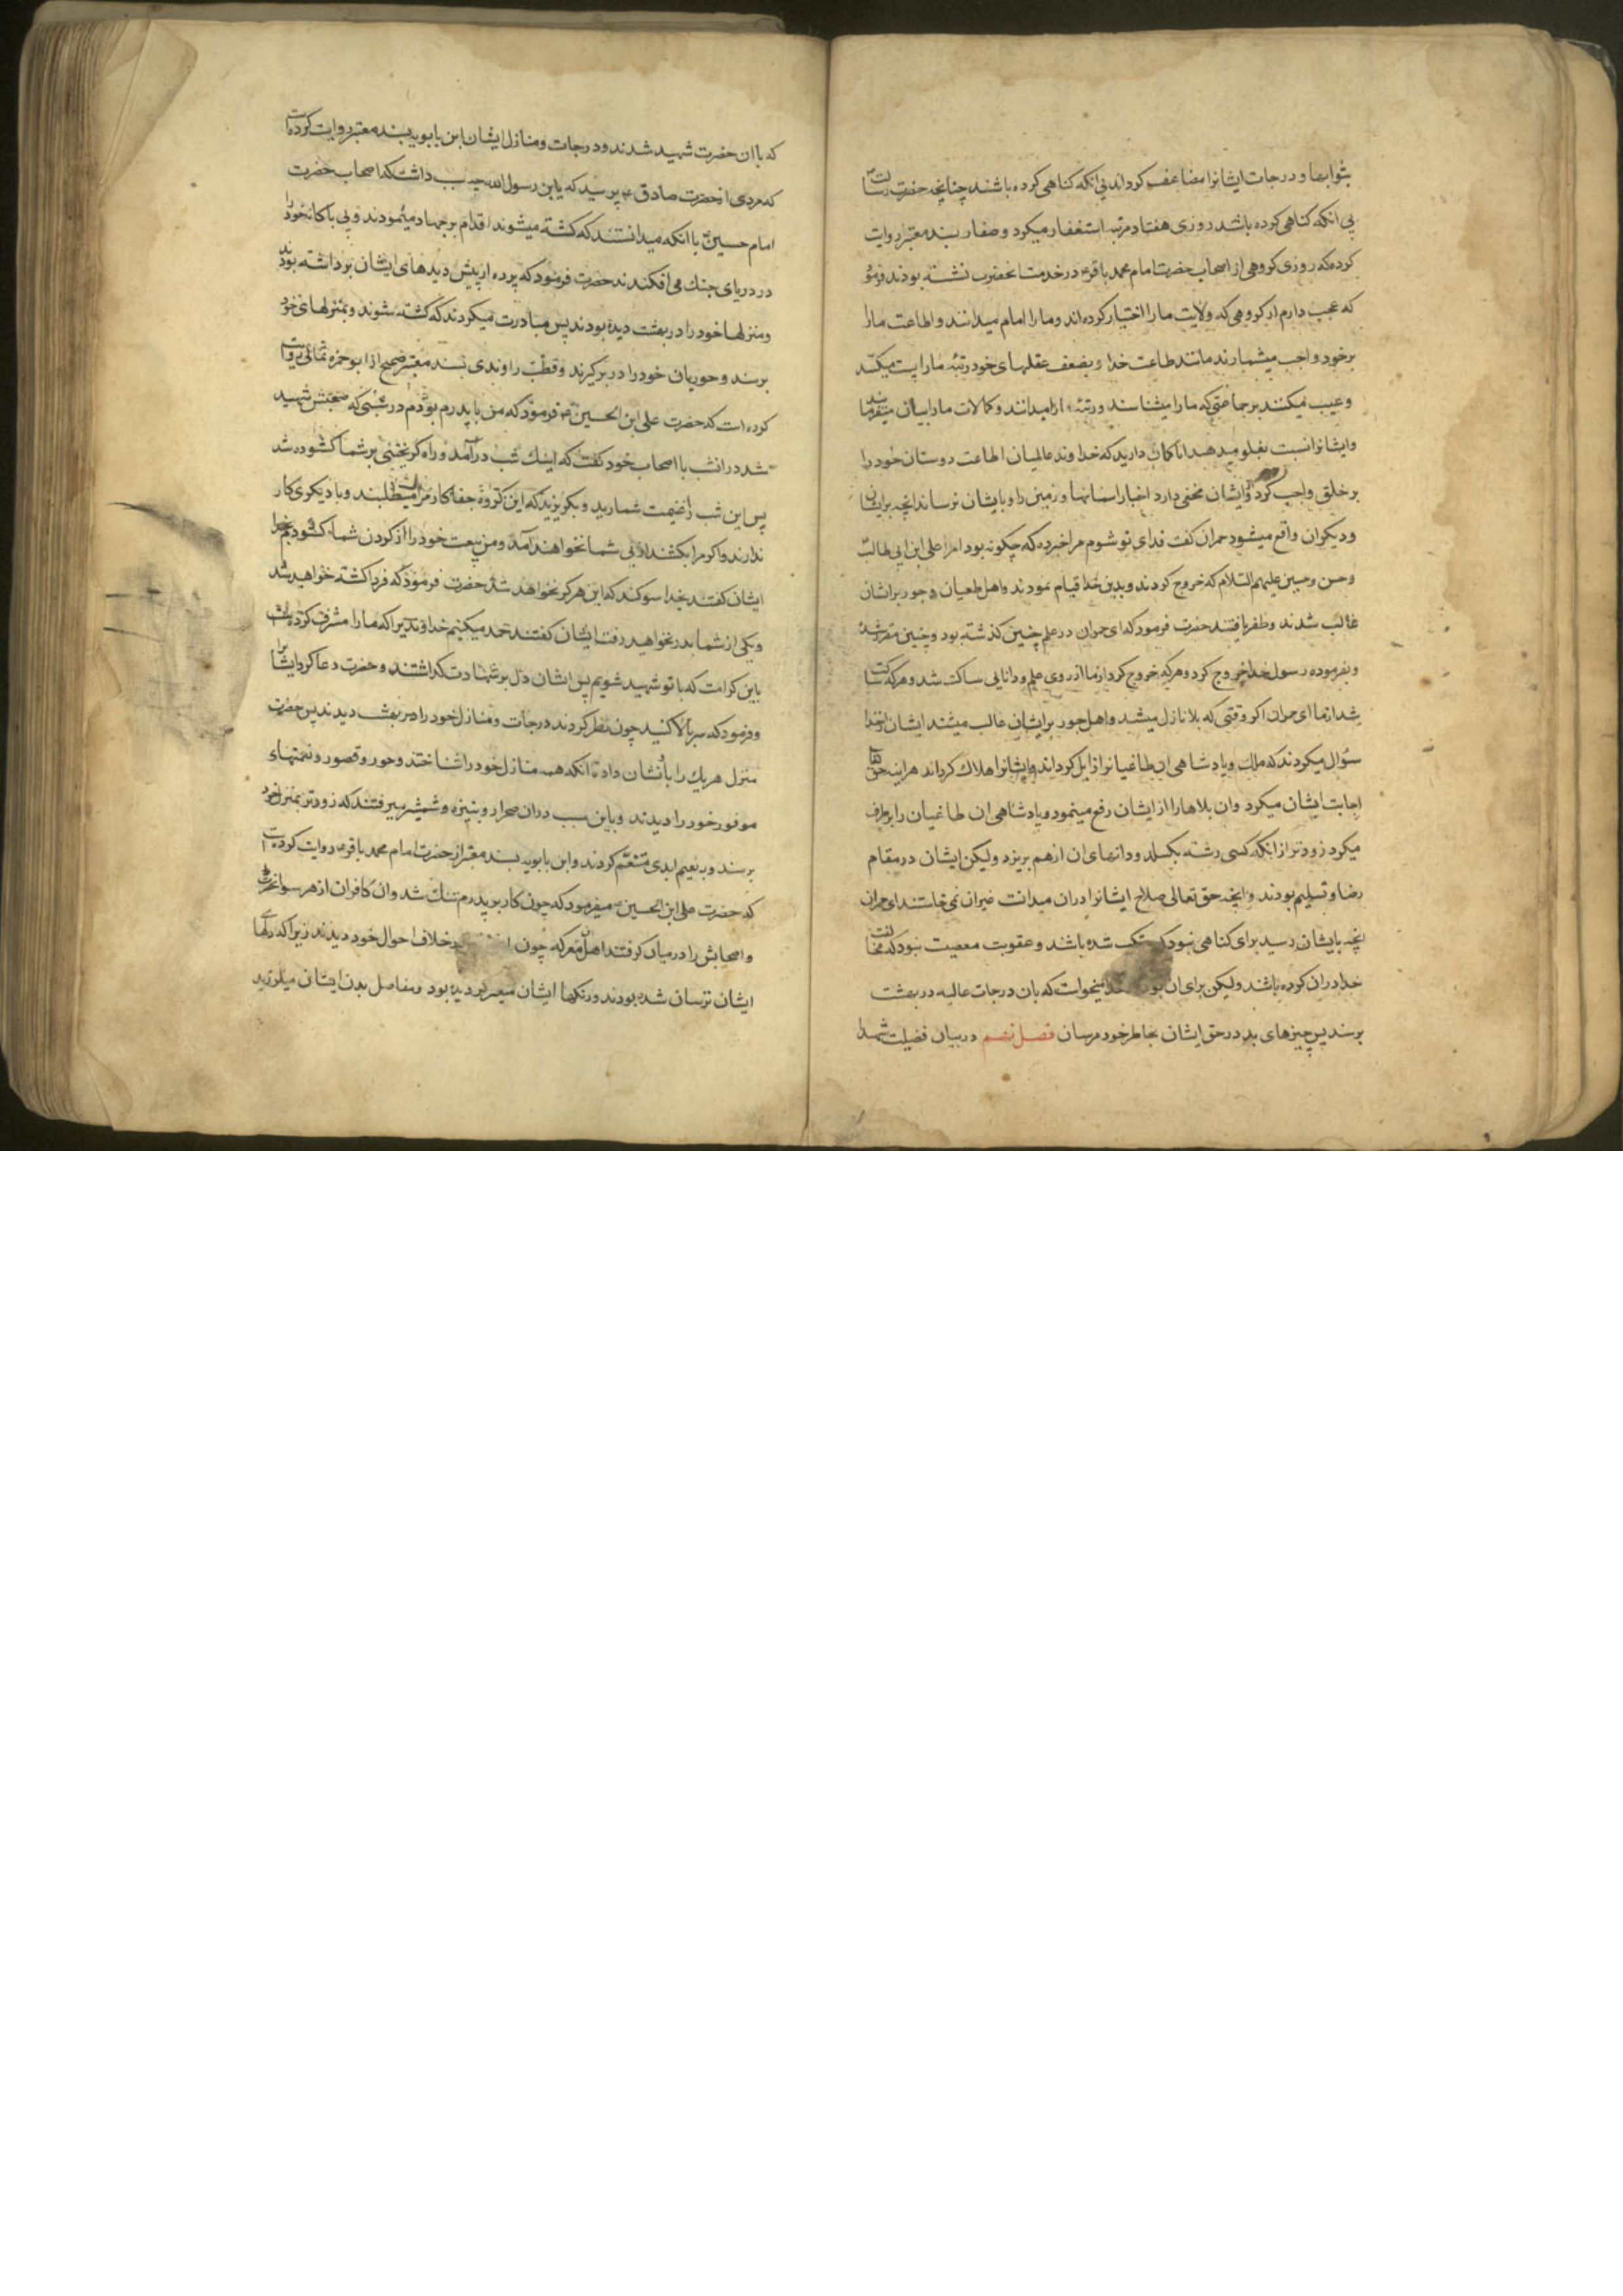 بثوابها و درجات ایشانرا مضاعف کرداند بی انکه کناهی کرده باشند چنانچه حضرت رسالت
بی انکه کناهی کرده باشد روزی هفتاد مرتبه استغفار میکرد و صفار بسند معتبر روایت
کرده که روزی کروهی از اصحاب حضرت امام محمد باقر ع در خدمت انحضرت نشسته بودند فرمود
که عجب دارم از کروهی که ولایت ما را اختیار کرده اند و ما را امام میدانند و اطاعت ما را
بر خود واجب میشمارند مانند طاعت خدا و بضعف عقلهای خود رتبه ما را پست میکند
و عیب میکنند بر جماعتی که ما را میشناسند و رتبه ما را میدانند و کمالات ما را بیان میفرمایند
و ایشانرا نسبت بغلو میدهند ایا کمان دارید که خداوند عالمیان اطاعت دوستان خود را
بر خلق واجب کرداند و ایشان مخفی دارد اخبار اسمانها و زمین را و بایشان نرساند انچه بر ایشان
و دیکران واقع میشود حمران کفت فدای تو شوم مرا خبر ده که چکونه بود امر علی ابن ابی طالب
و حسن و حسین علیهم السلام که خروج کردند و بدین خدا قیام نمودند و اهل طغیان و جور بر ایشان
غالب شدند و ظفر یافتند حضرت فرمود که ای حمران در علم چنین کذشته بود و چنین مقرر شد
و بفرموده رسول خدا خروج کرد و هر که خروج کرد از ما از روی علم و دانایی ساکت شد و هر که ساکت
شد از ما ای حمران اکر وقتی که بلا نازل میشد و اهل جور بر ایشان غالب میشدند ایشان از خدا
سؤال میکردند که ملک و پادشاهی ان طاغیانرا زایل کرداند و ایشانرا هلاک کرداند هر اینه حق تعالی
اجابت ایشان میکرد و ان بلاها را از ایشان رفع مینمود و پادشاهی ان طاغیان را برطرف
میکرد زودتر از انکه کسی رشته بکسلد و دانهای ان از هم بریزد و لیکن ایشان در مقام
رضا و تسلیم بودند و انچه حق تعالی صلاح ایشانرا در ان میدانست غیر ان نمیخواستند ای حمران
انچه بایشان رسید برای کناهی نبود که مرتکب شده باشد و عقوبت معصیت نبود که مخالفت
خدا در ان کرده باشند و لیکن برای ان بود که خدا میخواست که بان درجات عالیه در بهشت
برسند پس چیزهای بد در حق ایشان بخاطر خود مرسان فصل نهم در بیان فضیلت شهدا
که با ان حضرت شهید شدند و درجات و منازل ایشان ابن بابویه بسند معتبر روایت کرده است
که مردی از حضرت صادق ع پرسید که یابن رسول الله چه سبب داشت که اصحاب حضرت
امام حسین با انکه میدانستند که کشته میشوند اقدام بر جهاد مینمودند و بی باکانه خود را
در دریای جنک می افکندند حضرت فرمود که پرده از پیش دیدهای ایشان برداشته بودند
و منزلها خود را در بهشت دیده بودند پس مبادرت میکردند که کشته شوند و بمنزلهای خود
برسند و حوریان خود را در بر کیرند و قطب راوندی بسند معتبر صحیح از ابو حمزه ثمالی روایت
کرده است که حضرت علی ابن الحسین ع فرمود که من با پدرم بودم در شبی که صبحش شهید
شد در انشب با اصحاب خود کفت که اینک شب درآمد و راه کریختن بر شما کشوده شد
پس این شب را غنیمت شمارید و بکریزید که این کروه جفاکار مرا میطلبند و با دیکری کار
ندارند و اکر مرا بکشند از پی شما نخواهند آمد و من بیعت خود را از کردن شما کشودیم بخدا
ایشان کفتند بخدا سوکند که این هرکز نخواهد شد حضرت فرمود که فردا کشته خواهید شد
و یکی از شما بدر نخواهید رفت ایشان کفتند حمد میکنیم خداوندیرا که ما را مشرف کرده است
باین کرامت که با تو شهید شویم پس ایشان دل بر شهادت کذاشتند و حضرت دعا کرد ایشانرا
و فرمود که سر بالا کنید چون نظر کردند درجات و منازل خود را در بهشت دیدند پس حضرت
منزل هر یک را باو نشان داد تا انکه همه منازل خود را شناختند و حور و قصور و نعمتهای
موفور خود را دیدند و باین سبب در ان صحرا رو بنیزه و شمشیر میرفتند که زودتر بمنزل خود
برسند و به نعیم ابدی متنعم کردند و ابن بابویه بسند معتبر از حضرت امام محمد باقر ع روایت کرده است
که حضرت علی ابن الحسین میفرمود که چون کار بر پدرم تنک شد و ان کافران از هر سو انحضرت
و اصحابش را در میان کرفتند اهل معرکه چون خلاف احوال خود دیدند زیرا که دلهای
ایشان ترسان شده بودند و رنکها ایشان متغیر کردیده بود و مفاصل بدن ایشان میلرزید